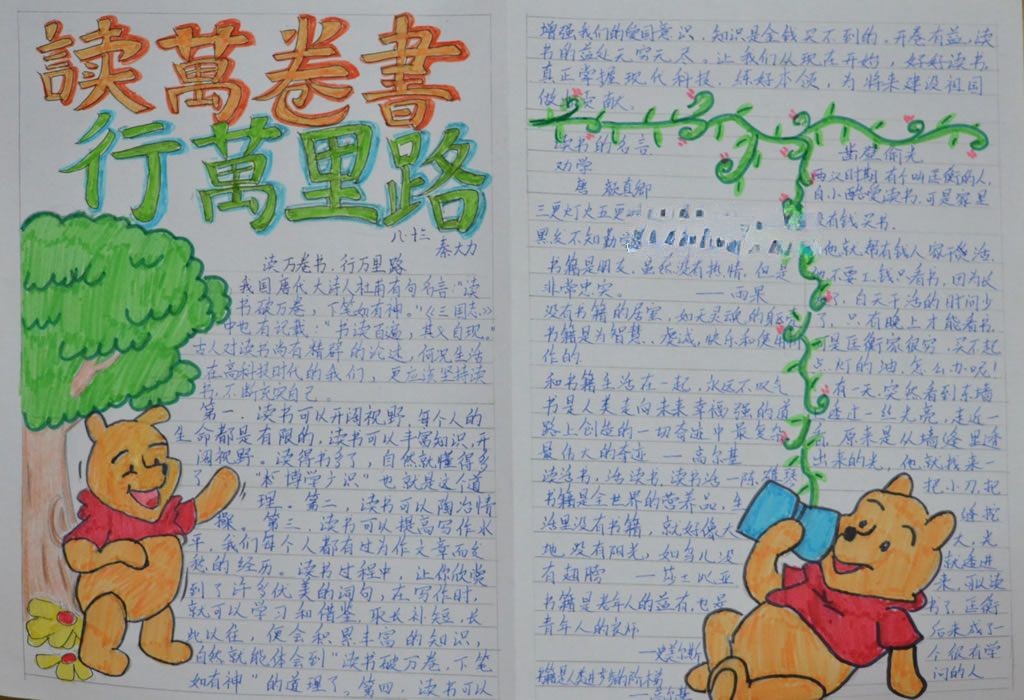 讀萬卷書
行萬里路
八·十三
秦大力
读万卷书,行万里路
我国唐代大诗人杜甫有句名言:“读
书破万卷,下笔如有神。”《三国志》
中也有记载:“书读百遍,其义自现。”
古人对读书尚有精辟的论述,何况生活
在高科技时代的我们,更应该坚持读
书,不断充实自己。
第一,读书可以开阔视野,每个人的
生命都是有限的,读书可以丰富知识,开
阔视野。读得书多了,自然就懂得多
了,“博学广识”也就是这个道
理。第二,读书可以陶冶情
操。第三,读书可以提高写作水
平,我们每个人都有过为作文章而发
愁的经历。读书过程中,让你欣赏
到了许多优美的词句,在写作时,
就可以学习和借鉴,取长补短,长
此以往,便会积累丰富的知识,
自然就能体会到“读书破万卷,下笔
如有神”的道理了。第四,读书可以
增强我们的爱国意识,知识是金钱买不到的。开卷有益,读
书的益处无穷无尽。让我们从现在开始,好好读书
真正掌握现代科技,练好本领,为将来建设祖国
做出贡献。
读书的名言
劝学
唐 颜真卿
三更灯火五更
黑发不知勤学
书籍是朋友,虽然没有热情,但是
非常忠实。 ——雨果
没有书籍的居室,如无灵魂的躯
书籍是为智慧、虔诚、快乐和使用
作的
和书籍生活在一起,永远不叹气
书是人类走向未来幸福强的道
路上创造的一切奇迹中最复杂
最伟大的奇迹 —高尔基
读活书,活读书,读书活—陈
书籍是全世界的营养品,生
活里没有书籍,就好像大
地没有阳光,如鸟儿没
有翅膀 —莎士比亚
书籍是老年人的益友,也是
青年人的良师
书籍是人类进步的阶梯
—高尔基
凿壁偷光
西汉时期,有个叫匡衡的人,
自小酷爱读书,可是家里
没有钱买书。
他就帮有钱人家干活
他不要工钱只看书,因为长
了,白天干活的时间少
了,只有晚上才能看书。
可是匡衡家很穷,买不起
点灯的油,怎么办呢!
有一天,突然看到东墙
透过一丝光亮,走近一
看,原来是从墙缝里透
出来的光,他就找来一
把小刀,把
缝挖
大,光
就透进
来,可以读
书了,匡衡
后来成了一
个很有学
问的人